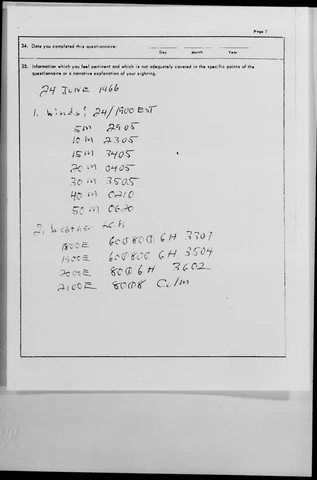 Page 7
34. Date you completed this questionnaire:
Day Month Year
35. Information which you feel pertinent and which is not adequately covered in the specific points of the
questionnaire or a narrative explanation of your sighting.
24 JUNE 1966
1. Winds: 24/1900 EST
5M 2905
10 M 2305
15M 3405
20 M 0405
30 M 3505
40 M 0210
50 M 0620
2. Weather
1800E 60Ⓓ80Ⓓ 6H 3307
1900E 60Ⓓ80Ⓓ 6H 3504
2000E 80Ⓓ6H 3602
2100E Calm